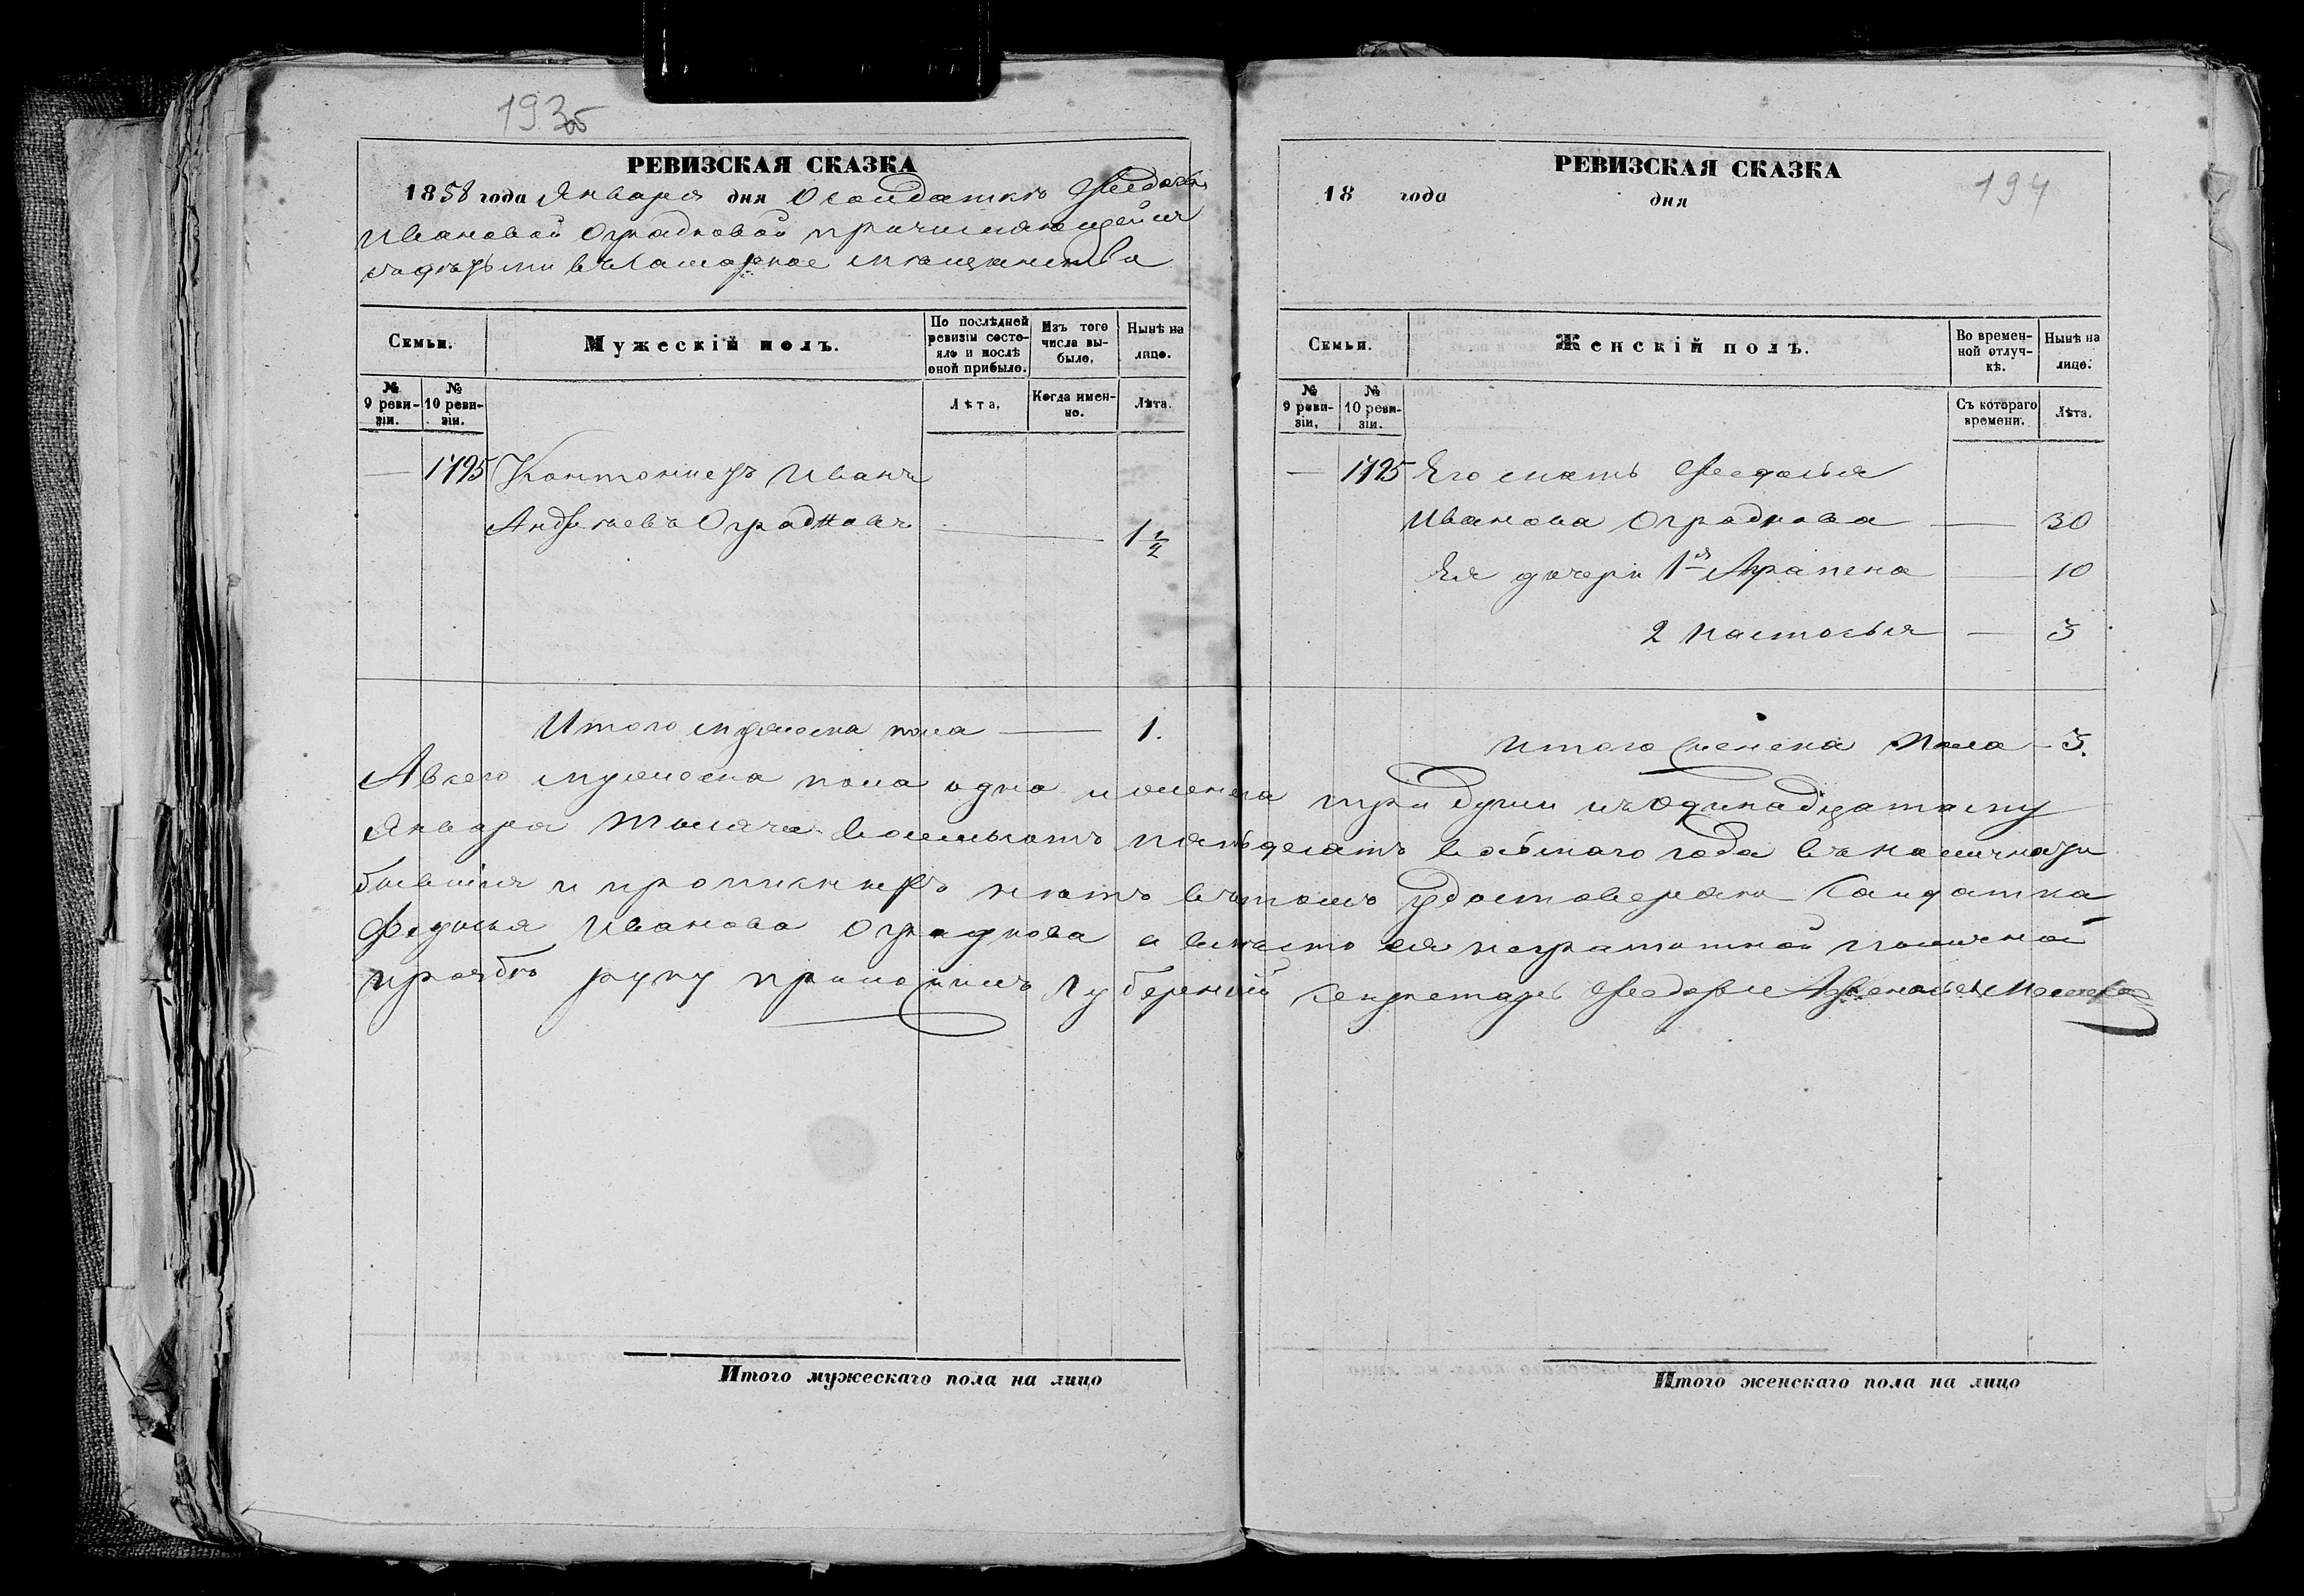 193
РЕВИЗСКАЯ СКАЗКА
1858 года Января дня О солдаткѣ Ѳедосьѣ
Ивановой Оградновой причисляющейся
съ дѣтьми въ Самарское мѣщанство
Семьи.
Мужескій полъ.
По послѣдней ревизіи состояло и послѣ оной прибыло.
Изъ того числа выбыло.
Нынѣ на лицо.
№ 9 ревизіи.
№ 10 ревизіи.
Лѣта.
Когда именно.
Лѣта.
— 1795 Кантонистъ Иванъ
Андреевъ Оградновъ — 1 1/2
Итого мужеска пола — 1.
194
РЕВИЗСКАЯ СКАЗКА
18 года дня
Семьи.
Женскій полъ.
Во временной отлучкѣ.
Нынѣ на лицо.
№ 9 ревизіи,
№ 10 ревизіи.
Съ котораго времени.
Лѣта.
— 1795 Его мать Ѳедосья
ИвановаОграднова — 30
Ея дочери 1я Аграпена — 10
2 Настасья — 3
Итого женска пола — 3.
А всего мужеска пола одна и женска три души къ одинадцатому
Января тысяча восемьсотъ пятьдесятъ восьмаго года въ наличности
бывшія и нѣтъ въ томъ удостоверяю Салдатка
Федосья ИвановаОграднова а вместо ея неграмотной по личной
прозьбѣ руку приложилъ Губернскій Секретарь Ѳедоръ
Итого мужескаго пола на лицо
Итого женскаго пола на лицо